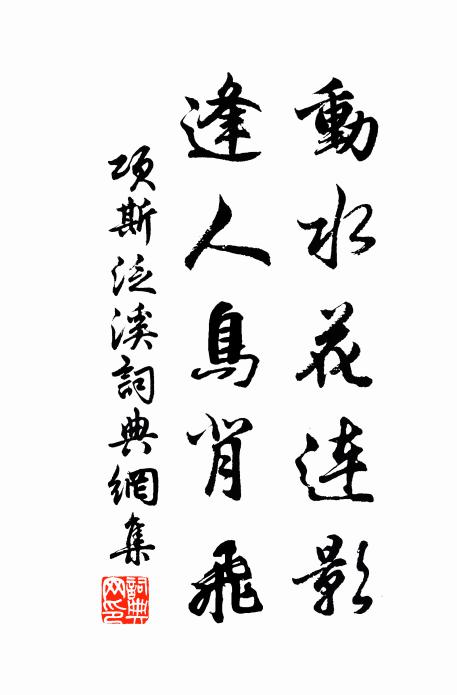 動水花連影
逢人鳥背飛
項斯泛溪詞典網集
詞典網印